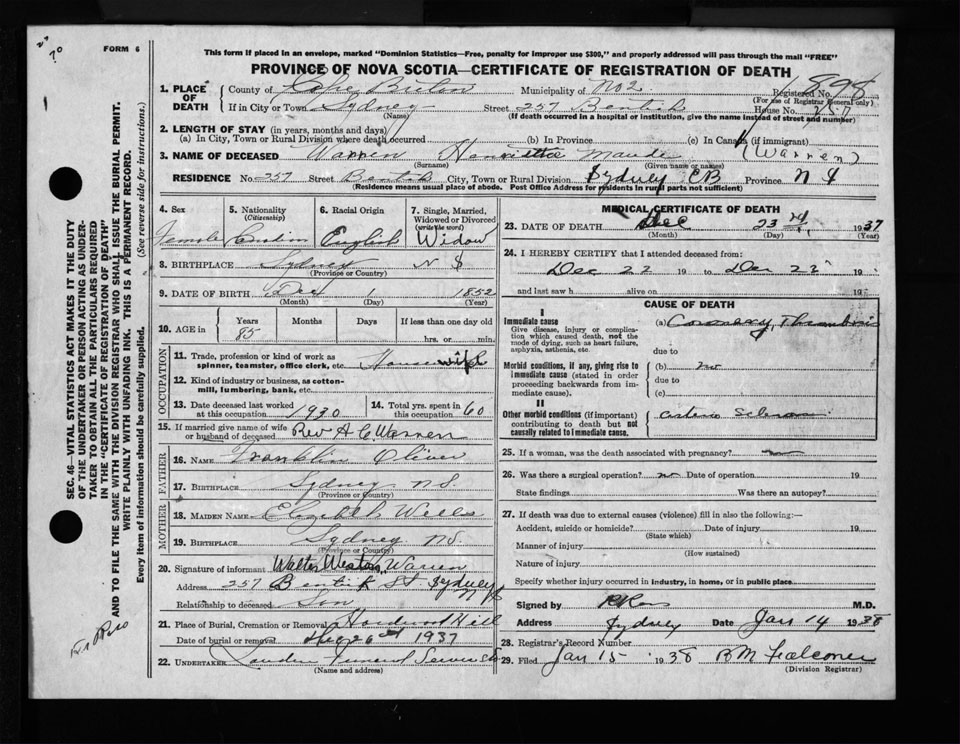 FORM 6
This form if placed in an envelope, marked "Dominion Statistics—Free, penalty for improper use $300," and properly addressed will pass through the mail "FREE"
PROVINCE OF NOVA SCOTIA—CERTIFICATE OF REGISTRATION OF DEATH
SEC. 46—VITAL STATISTICS ACT MAKES IT THE DUTY
OF THE UNDERTAKER OR PERSON ACTING AS UNDER-
TAKER TO OBTAIN ALL THE PARTICULARS REQUIRED
IN THE "CERTIFICATE OF REGISTRATION OF DEATH"
AND TO FILE THE SAME WITH THE DIVISION REGISTRAR WHO SHALL ISSUE THE BURIAL PERMIT.
WRITE PLAINLY WITH UNFADING INK. THIS IS A PERMANENT RECORD.
Every item of information should be carefully supplied. (See reverse side for instructions.)
1. PLACE OF DEATH County of Cape Breton Municipality of No 2 Registered No. 898
(For use of Registrar General only)
If in City or Town Sydney Street 257 Bentick House No. 257
(Name) (If death occurred in a hospital or institution, give the name instead of street and number)
2. LENGTH OF STAY (in years, months and days)
(a) In City, Town or Rural Division where death occurred (b) In Province (c) In Canada (if immigrant)
3. NAME OF DECEASED Warren Henrietta Maude (Warren)
(Surname) (Given name or names)
RESIDENCE No. 257 Street Bentick City, Town or Rural Division Sydney CB Province N S
(Residence means usual place of abode. Post Office Address for residents in rural parts not sufficient)
4. Sex 5. Nationality (Citizenship) 6. Racial Origin 7. Single, Married, Widowed or Divorced (write the word)
Female Canadian English Widow
8. BIRTHPLACE Sydney N S
(Province or Country)
9. DATE OF BIRTH Dec 1 1852
(Month) (Day) (Year)
10. AGE in Years Months Days If less than one day old
85 hrs. or min.
OCCUPATION
11. Trade, profession or kind of work as spinner, teamster, office clerk, etc. Housewife
12. Kind of industry or business, as cotton-mill, lumbering, bank, etc.
13. Date deceased last worked at this occupation 1930 14. Total yrs. spent in this occupation 60
15. If married give name of wife or husband of deceased Rev A C Warren
FATHER
16. NAME Franklin Oliver
17. BIRTHPLACE Sydney N.S.
(Province or Country)
MOTHER
18. MAIDEN NAME Elizabeth Wells
19. BIRTHPLACE Sydney N.S.
(Province or Country)
20. Signature of informant Walter Weston Warren
Address 257 Bentick St. Sydney
Relationship to deceased Son
21. Place of Burial, Cremation or Removal Hardwood Hill
Date of burial or removal Dec 26 1937
22. UNDERTAKER Funeral Service
(Name and address)
MEDICAL CERTIFICATE OF DEATH
23. DATE OF DEATH Dec 23rd 1937
(Month) (Day) (Year)
24. I HEREBY CERTIFY that I attended deceased from:
Dec 22 19 to Dec 23 19
and last saw h alive on 19
CAUSE OF DEATH
I
Immediate cause (a) Coronary Thrombosis
Give disease, injury or complication which caused death, not the mode of dying, such as heart failure, asphyxia, asthenia, etc. due to
Morbid conditions, if any, giving rise to immediate cause (stated in order proceeding backwards from immediate cause). (b) no
due to
(c)
II
Other morbid conditions (if important) contributing to death but not causally related to immediate cause. Arterio Sclerosis
25. If a woman, was the death associated with pregnancy? no
26. Was there a surgical operation? no Date of operation 19
State findings Was there an autopsy?
27. If death was due to external causes (violence) fill in also the following:—
Accident, suicide or homicide? Date of injury 19
(State which)
Manner of injury
(How sustained)
Nature of injury
Specify whether injury occurred in industry, in home, or in public place
Signed by M.D.
Address Sydney Date Jan 14 1938
28. Registrar's Record Number
29. Filed Jan 15 1938 B M Falconer
(Division Registrar)